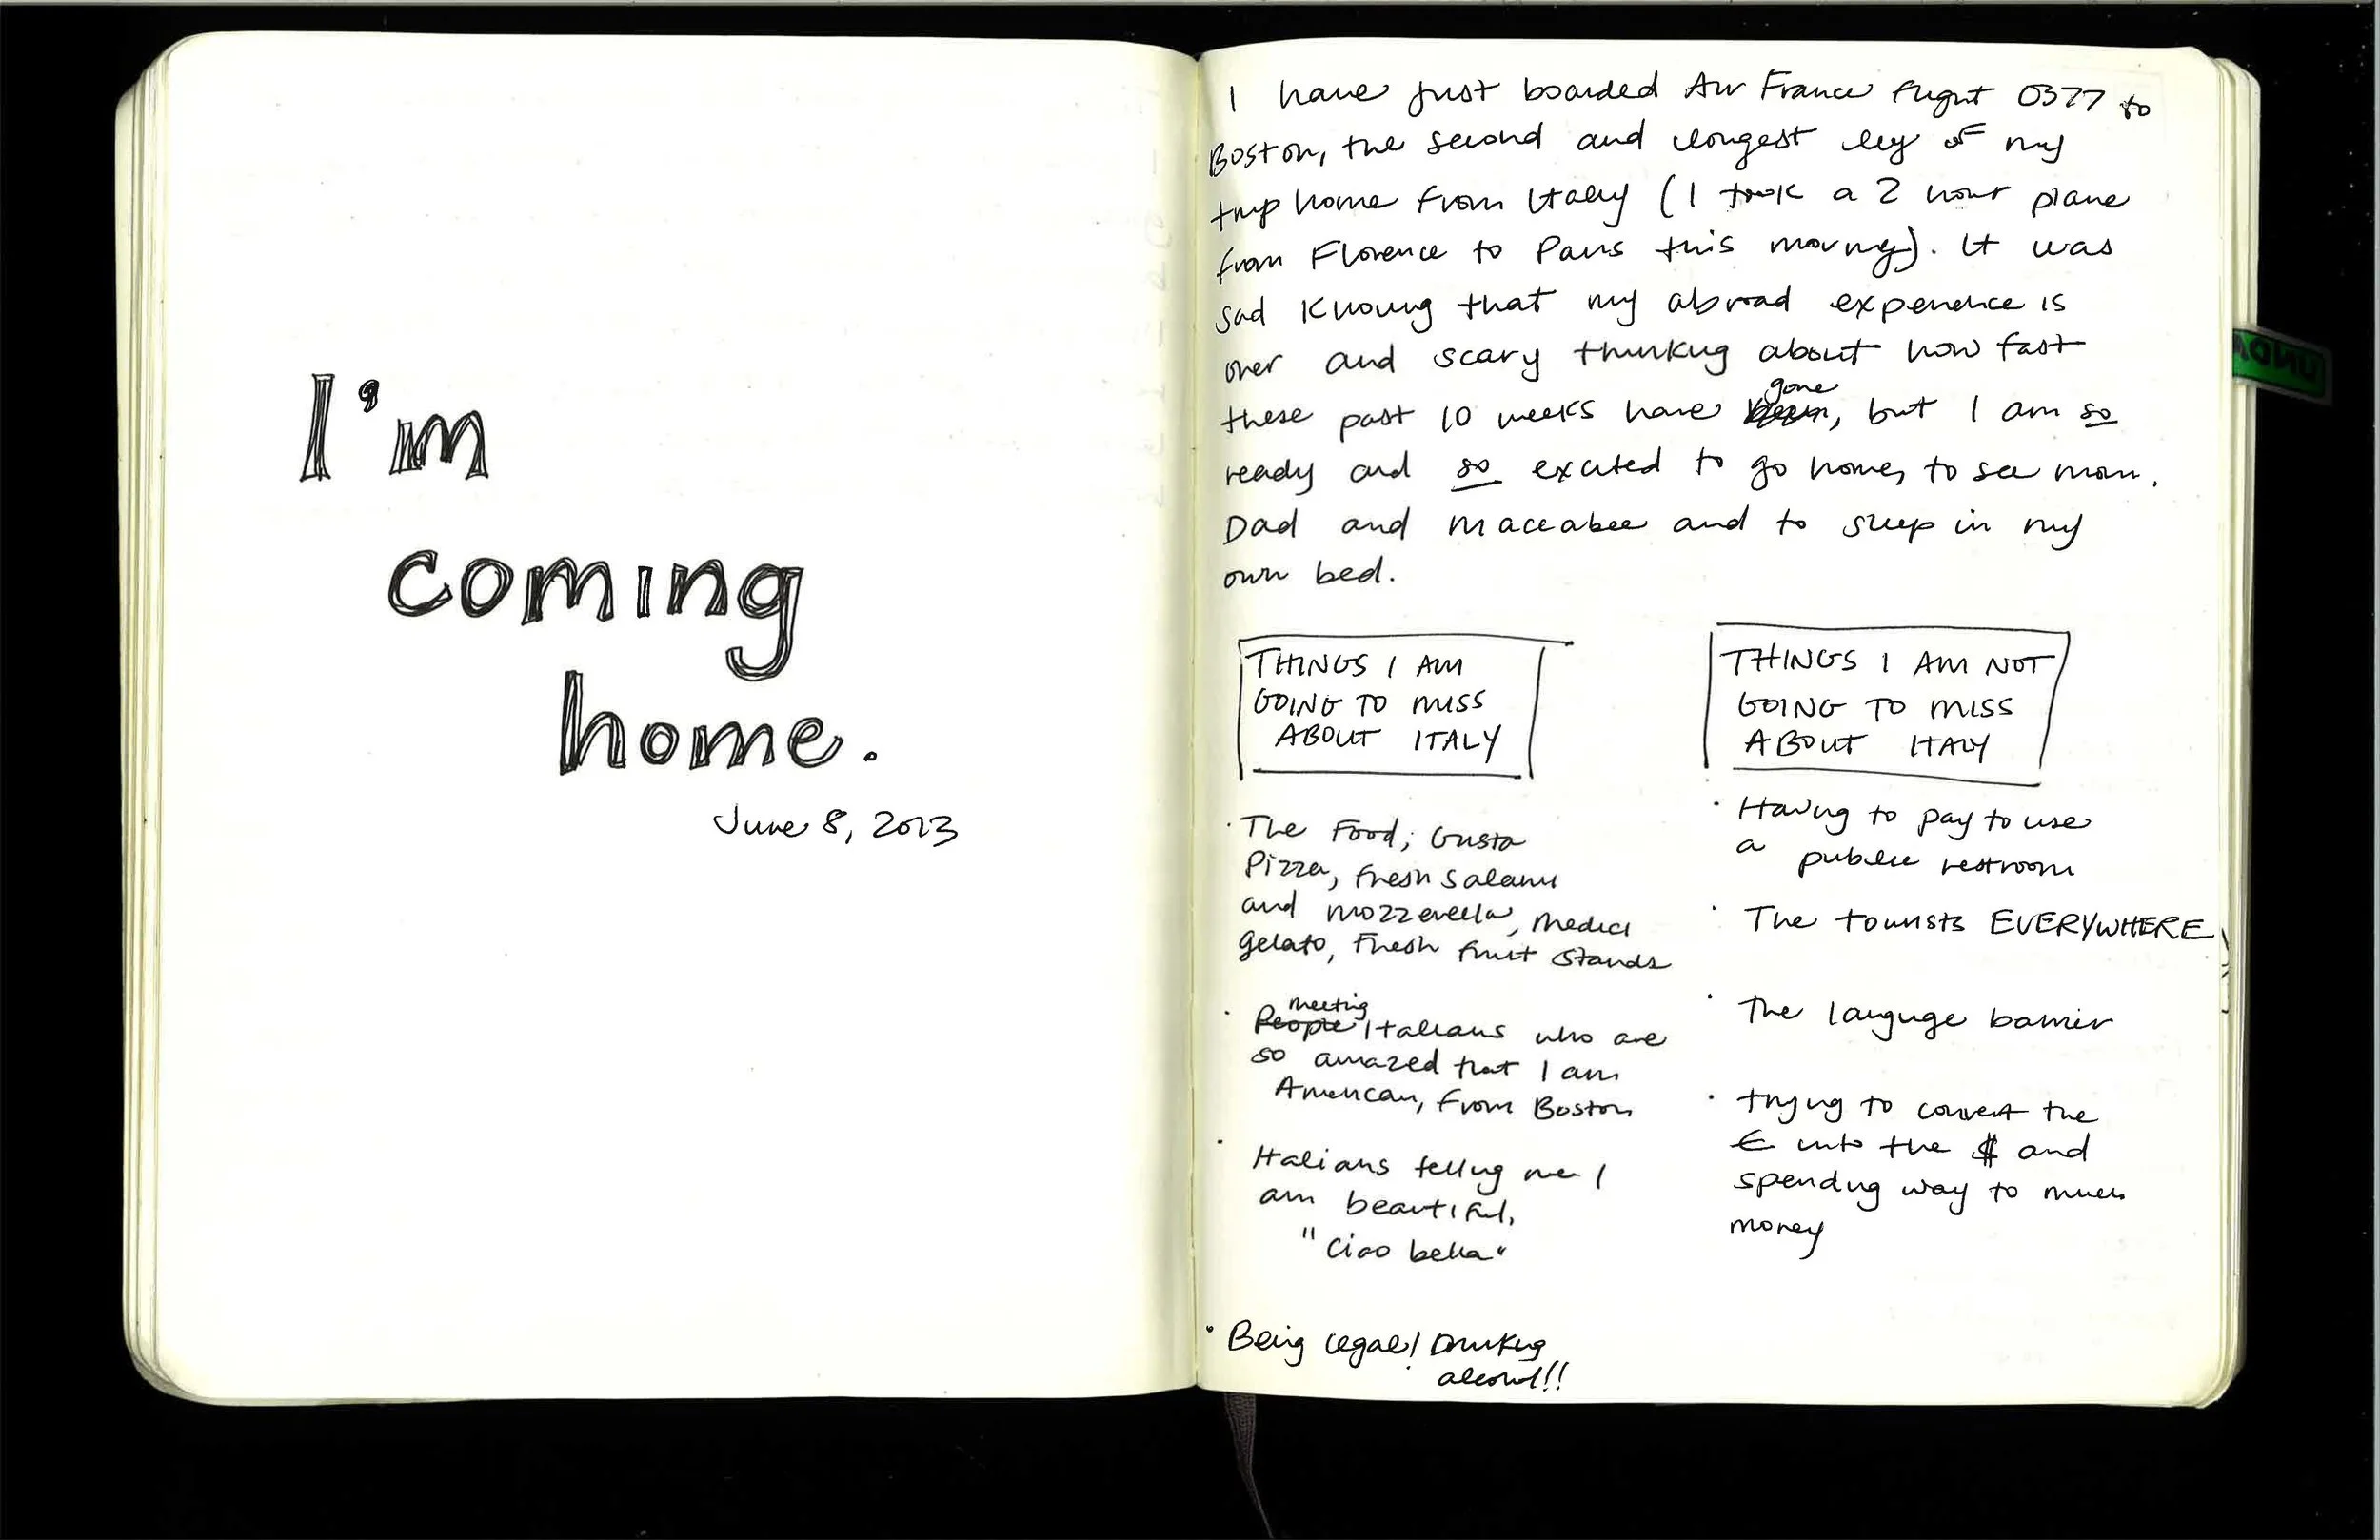 I'm
coming
home.
June 8, 2013
I have just boarded Air France flight 0377 to
Boston, the second and longest leg of my
trip home from Italy (I took a 2 hour plane
from Florence to Paris this morning). It was
sad knowing that my abroad experience is
over and scary thinking about how fast
gone
these past 10 weeks have been, but I am so
ready and so excited to go home, to see mom,
Dad and Maccabee and to sleep in my
own bed.
THINGS I AM
GOING TO MISS
ABOUT ITALY
· The Food; Gusta
Pizza, fresh salami
and mozzerella, Medici
gelato, Fresh fruit stands
meeting
· People Italians who are
so amazed that I am
American, from Boston
· Italians telling me I
am beautiful,
"ciao bella"
· Being legal! Drinking
alcohol!!
THINGS I AM NOT
GOING TO MISS
ABOUT ITALY
· Having to pay to use
a public restroom
· The tourists EVERYWHERE
· The languge barrier
· trying to convert the
€ into the $ and
spending way to much
money